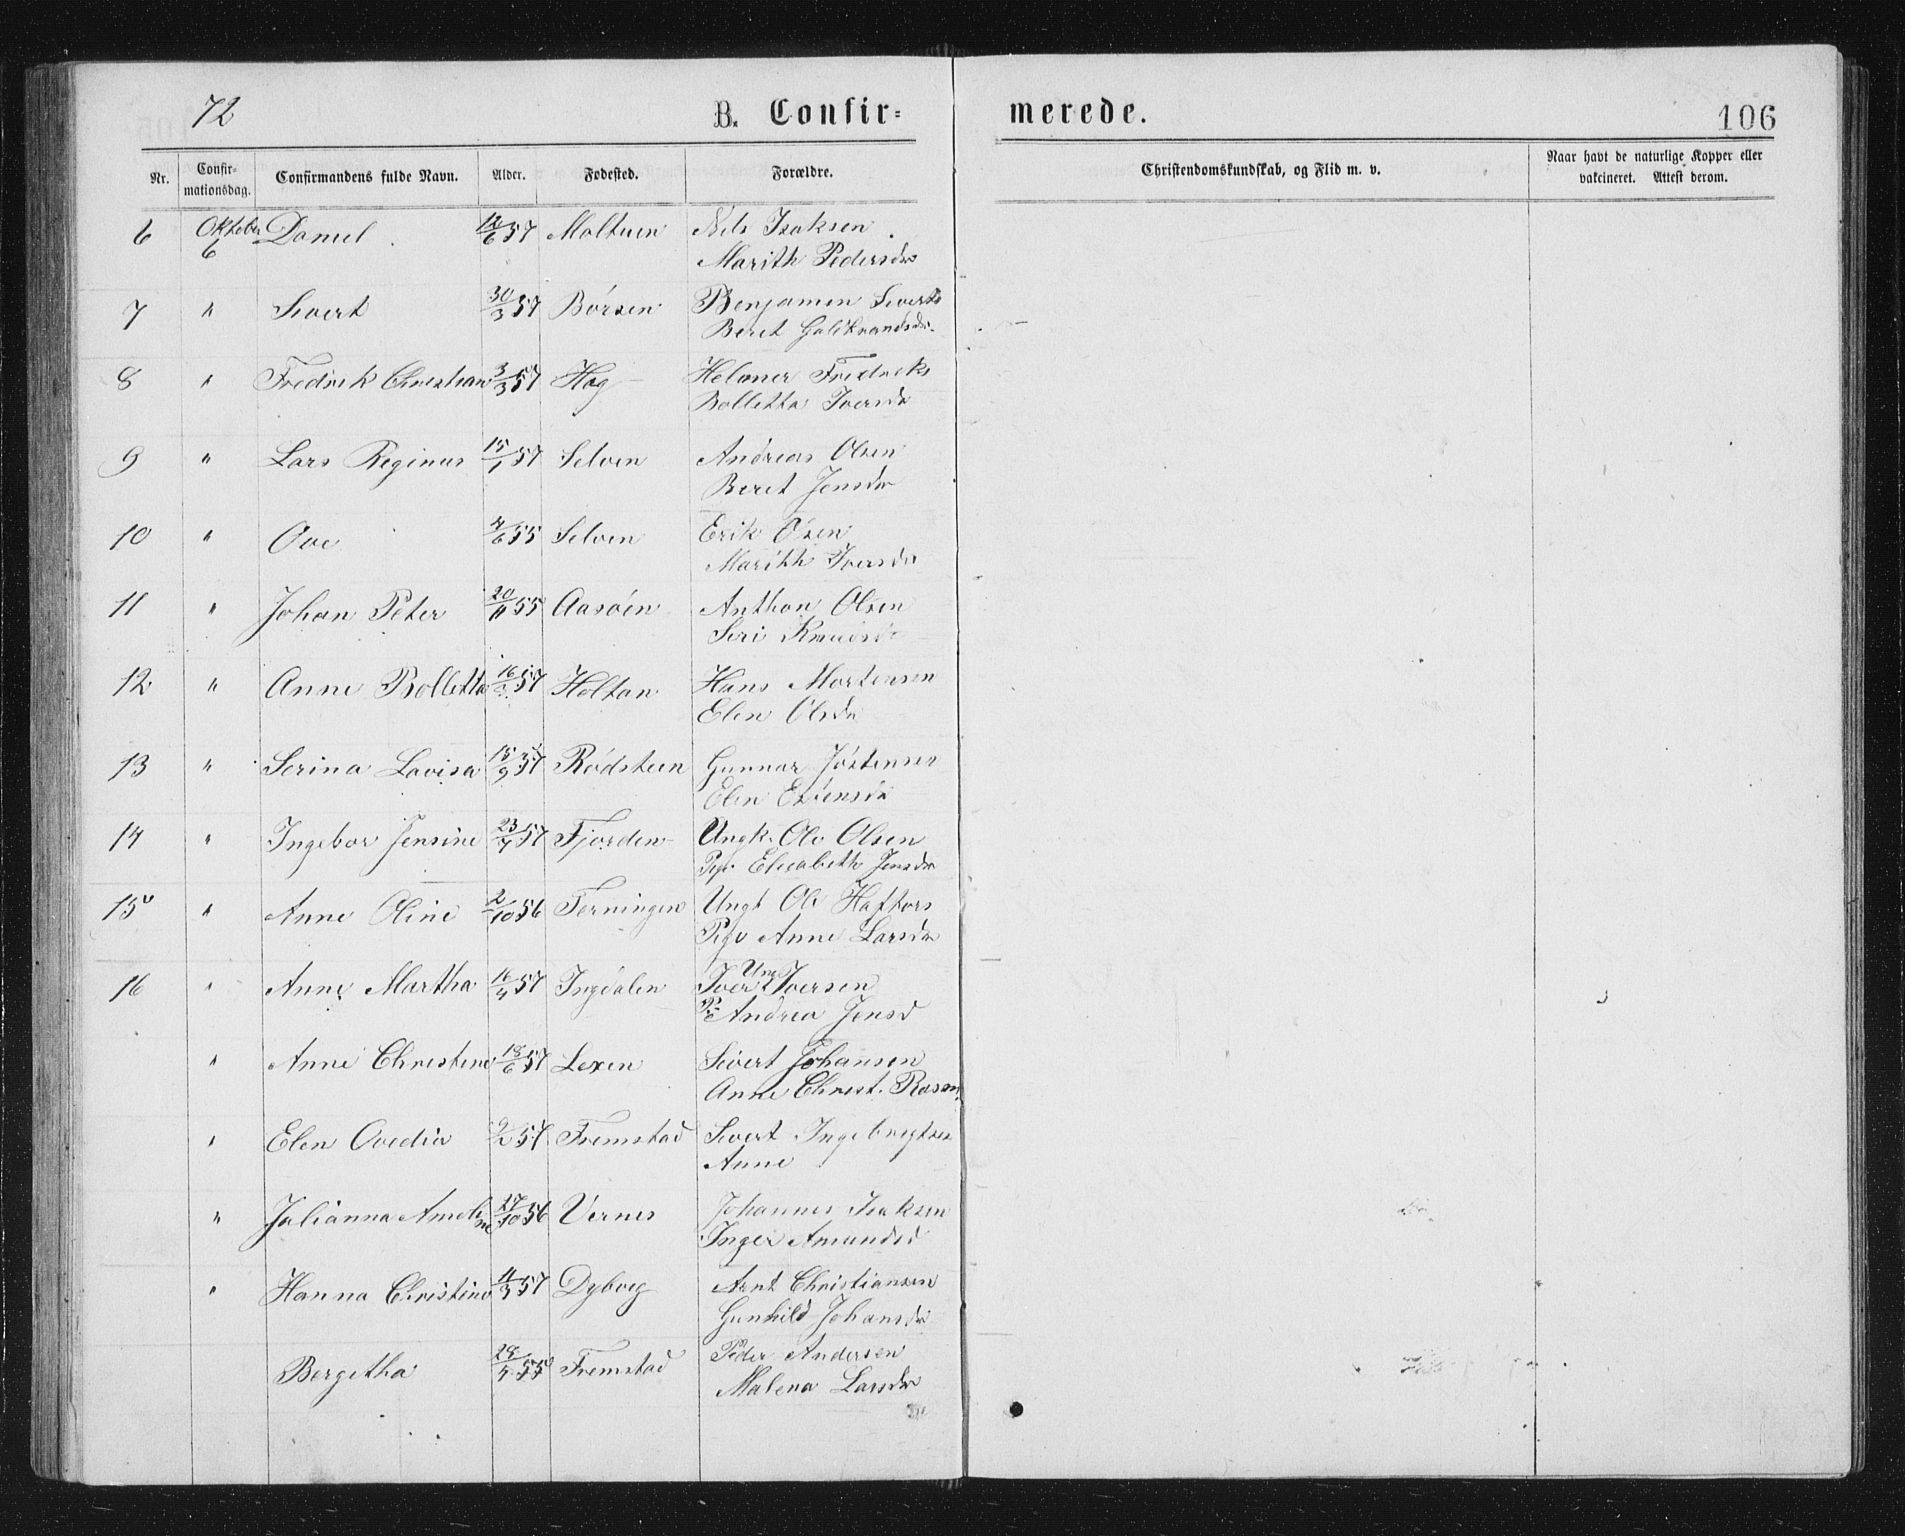 72
B. Confir=
merede.
106
Nr. Confir-mationsdag. Confirmandens fulde Navn. Alder. Fødested. Forældre. Christendomskundskab, og Flid m. v. Naar havt de naturlige Kopper eller vakcineret. Attest derom.
6 Oktober 6 Daniel 12/6 57 Moltuen Nils Isaksen
Marith Pedersdr
7 " Sivert 30/3 57 Børsen Benjamin Siverts
Beret
8 " Fredrik Christian 3/3 57 Hog Helmer Fredriks
Bolletta Iversdr
9 " Lars Reginus 15/1 57 Selven Andreas Olsen
Beret Jensdr
10 " Ove 4/6 55 Selven Erik Olsen
Marith Iversdr
11 " Johan Peter 20/11 55 Aasøen Anthon Olsen
Siri Knudsdr
12 " Anne Bolletta 16/2 57 Holtan Hans Mortensen
Elen Olsdr
13 " Serina Lovisa 15/9 57 Rødsteen Gunnar Jøstensen
Elen
14 " Ingebor Jensine 23/7 57 Fjorden Ungk. Ole Olsen
Pige Elisabeth Jensdr
15 " Anne Oline 2/10 56 Terningen Ungk Ole Haftors
Pige Anne Larsdr
16 " Anne Martha 16/4 57 Ingdalen Iver Ungk Iversen
Andrea Jensd
" Anne Christine 18/6 57 Lexen Sivert Johansen
Anne Christ. Rasm.
" Elen Ovedia 9/2 57 Fremstad Sivert Ingebregtsen
Anne
" Julianna Ameline 17/10 56 Vernes Johannes Isaksen
Inger Amundsd
" Hanna Christine 11/3 57 Dybveg Arnt Christiansen
Gunhild Johansdr
Bergetha 28/4 55 Fremstad Peder Andersen
Malena Larsdr